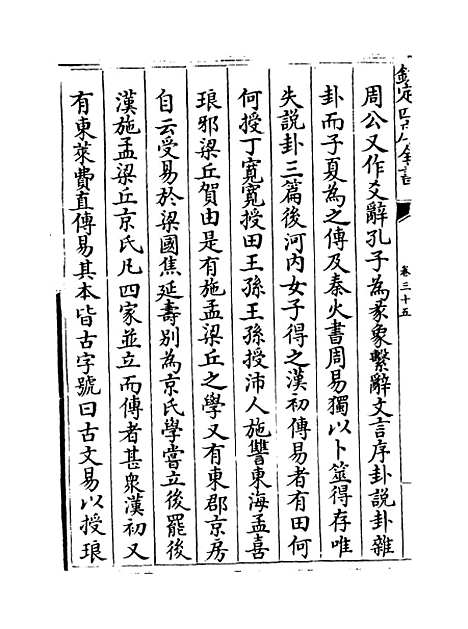 欽定四庫全書
卷三十五
周公又作爻辭孔子為彖象繫辭文言序卦說卦雜
卦而子夏為之傳及秦火書周易獨以卜筮得存唯
失說卦三篇後河內女子得之漢初傳易者有田何
何授丁寬寬授田王孫王孫授沛人施讐東海孟喜
琅邪梁丘賀由是有施孟梁丘之學又有東郡京房
自云受易於梁國焦延壽別為京氏學嘗立後罷後
漢施孟梁丘京氏凡四家並立而傳者甚衆漢初又
有東萊費直傳易其本皆古字號曰古文易以授琅